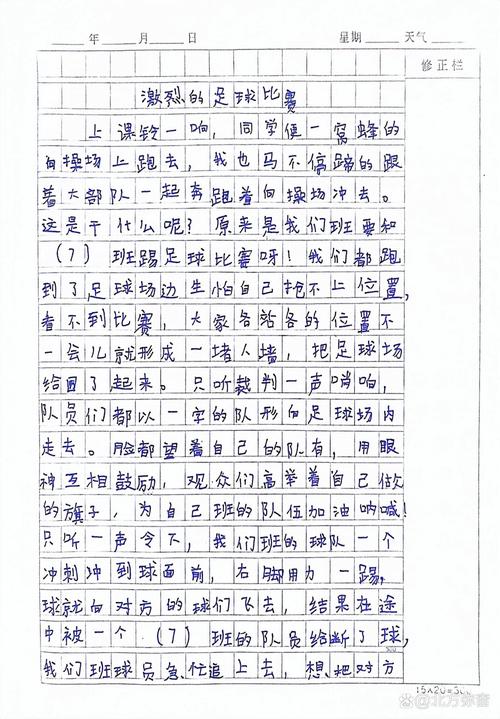 年 月 日 星期 天气
修正栏
激烈的足球比赛
上课铃一响，同学便一窝蜂的
向操场上跑去，我也马不停蹄的跟
着大部队一起奔跑着向操场冲去。
这是干什么呢？原来是我们班要和
（7）班踢足球比赛呀！我们都跑
到了足球场边生怕自己抢不上位置，
看不到比赛，大家各站各的位置不
一会儿就形成一堵人墙，把足球场
给围了起来。只听裁判一声哨响，
队员们都以一字的队形向足球场内
走去。脸都望着自己的队有，用眼
神互相鼓励，观众们高举着自己做
的旗子，为自己班的队伍加油呐喊！
只听一声令下，我们班的球队一个
冲刺冲到球面前，右脚用力一踢，
球就向对方的球们飞去，结果在途
中被一个（7）班的队员给断了球，
我们班球员急忙追上去，想把对方
15×20=300
@北方弥斋